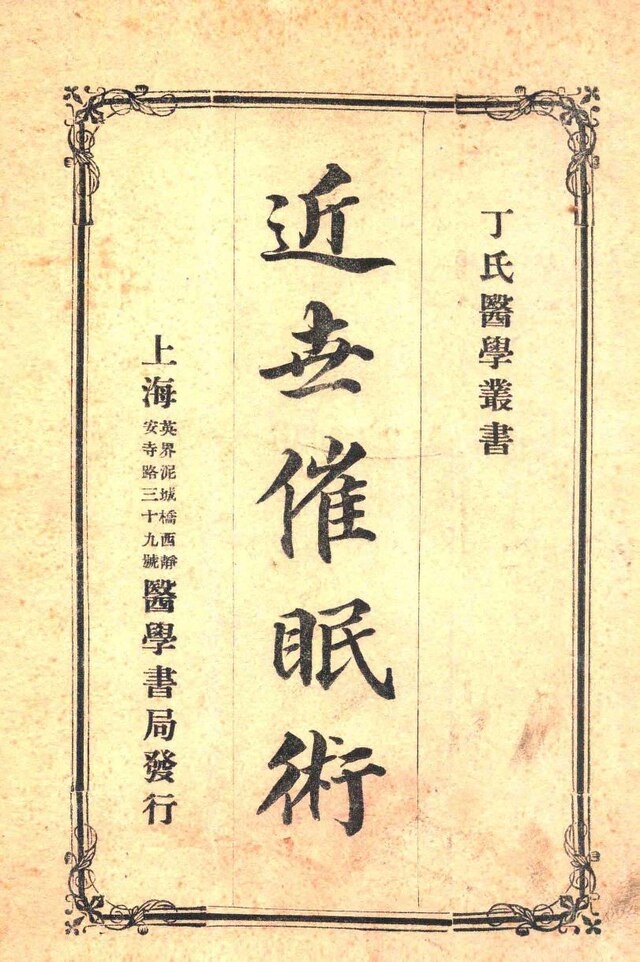 丁氏醫學叢書
近世催眠術
上海英界泥城橋西靜
安寺路三十九號醫學書局發行